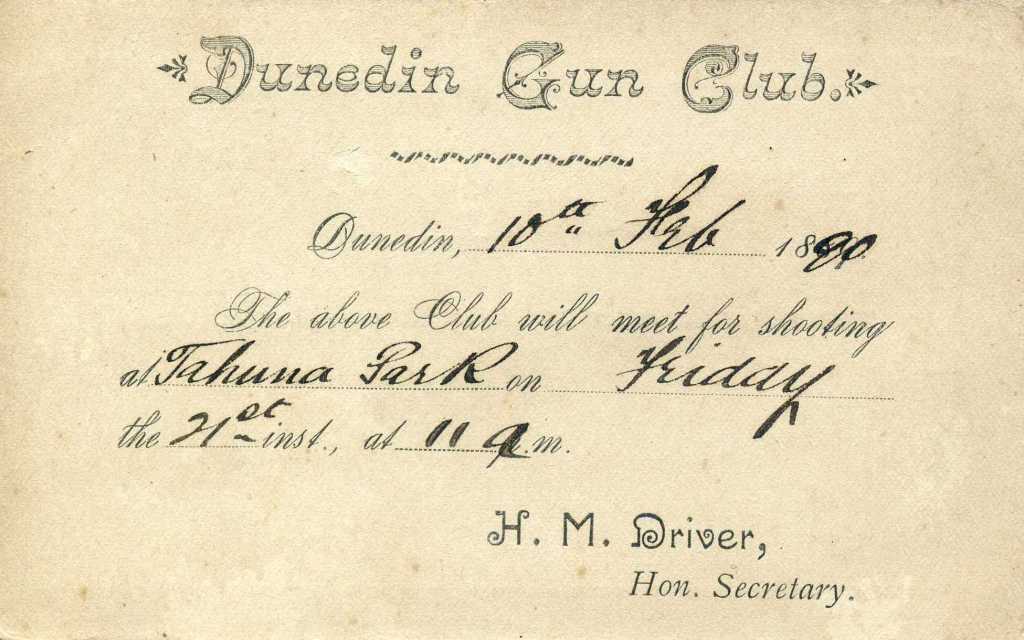 Dunedin Gun Club.
Dunedin, 18th Feb 1890
The above Club will meet for shooting
at Tahuna Park on Friday
the 21st inst., at 11 a.m.
H. M. Driver,
Hon. Secretary.